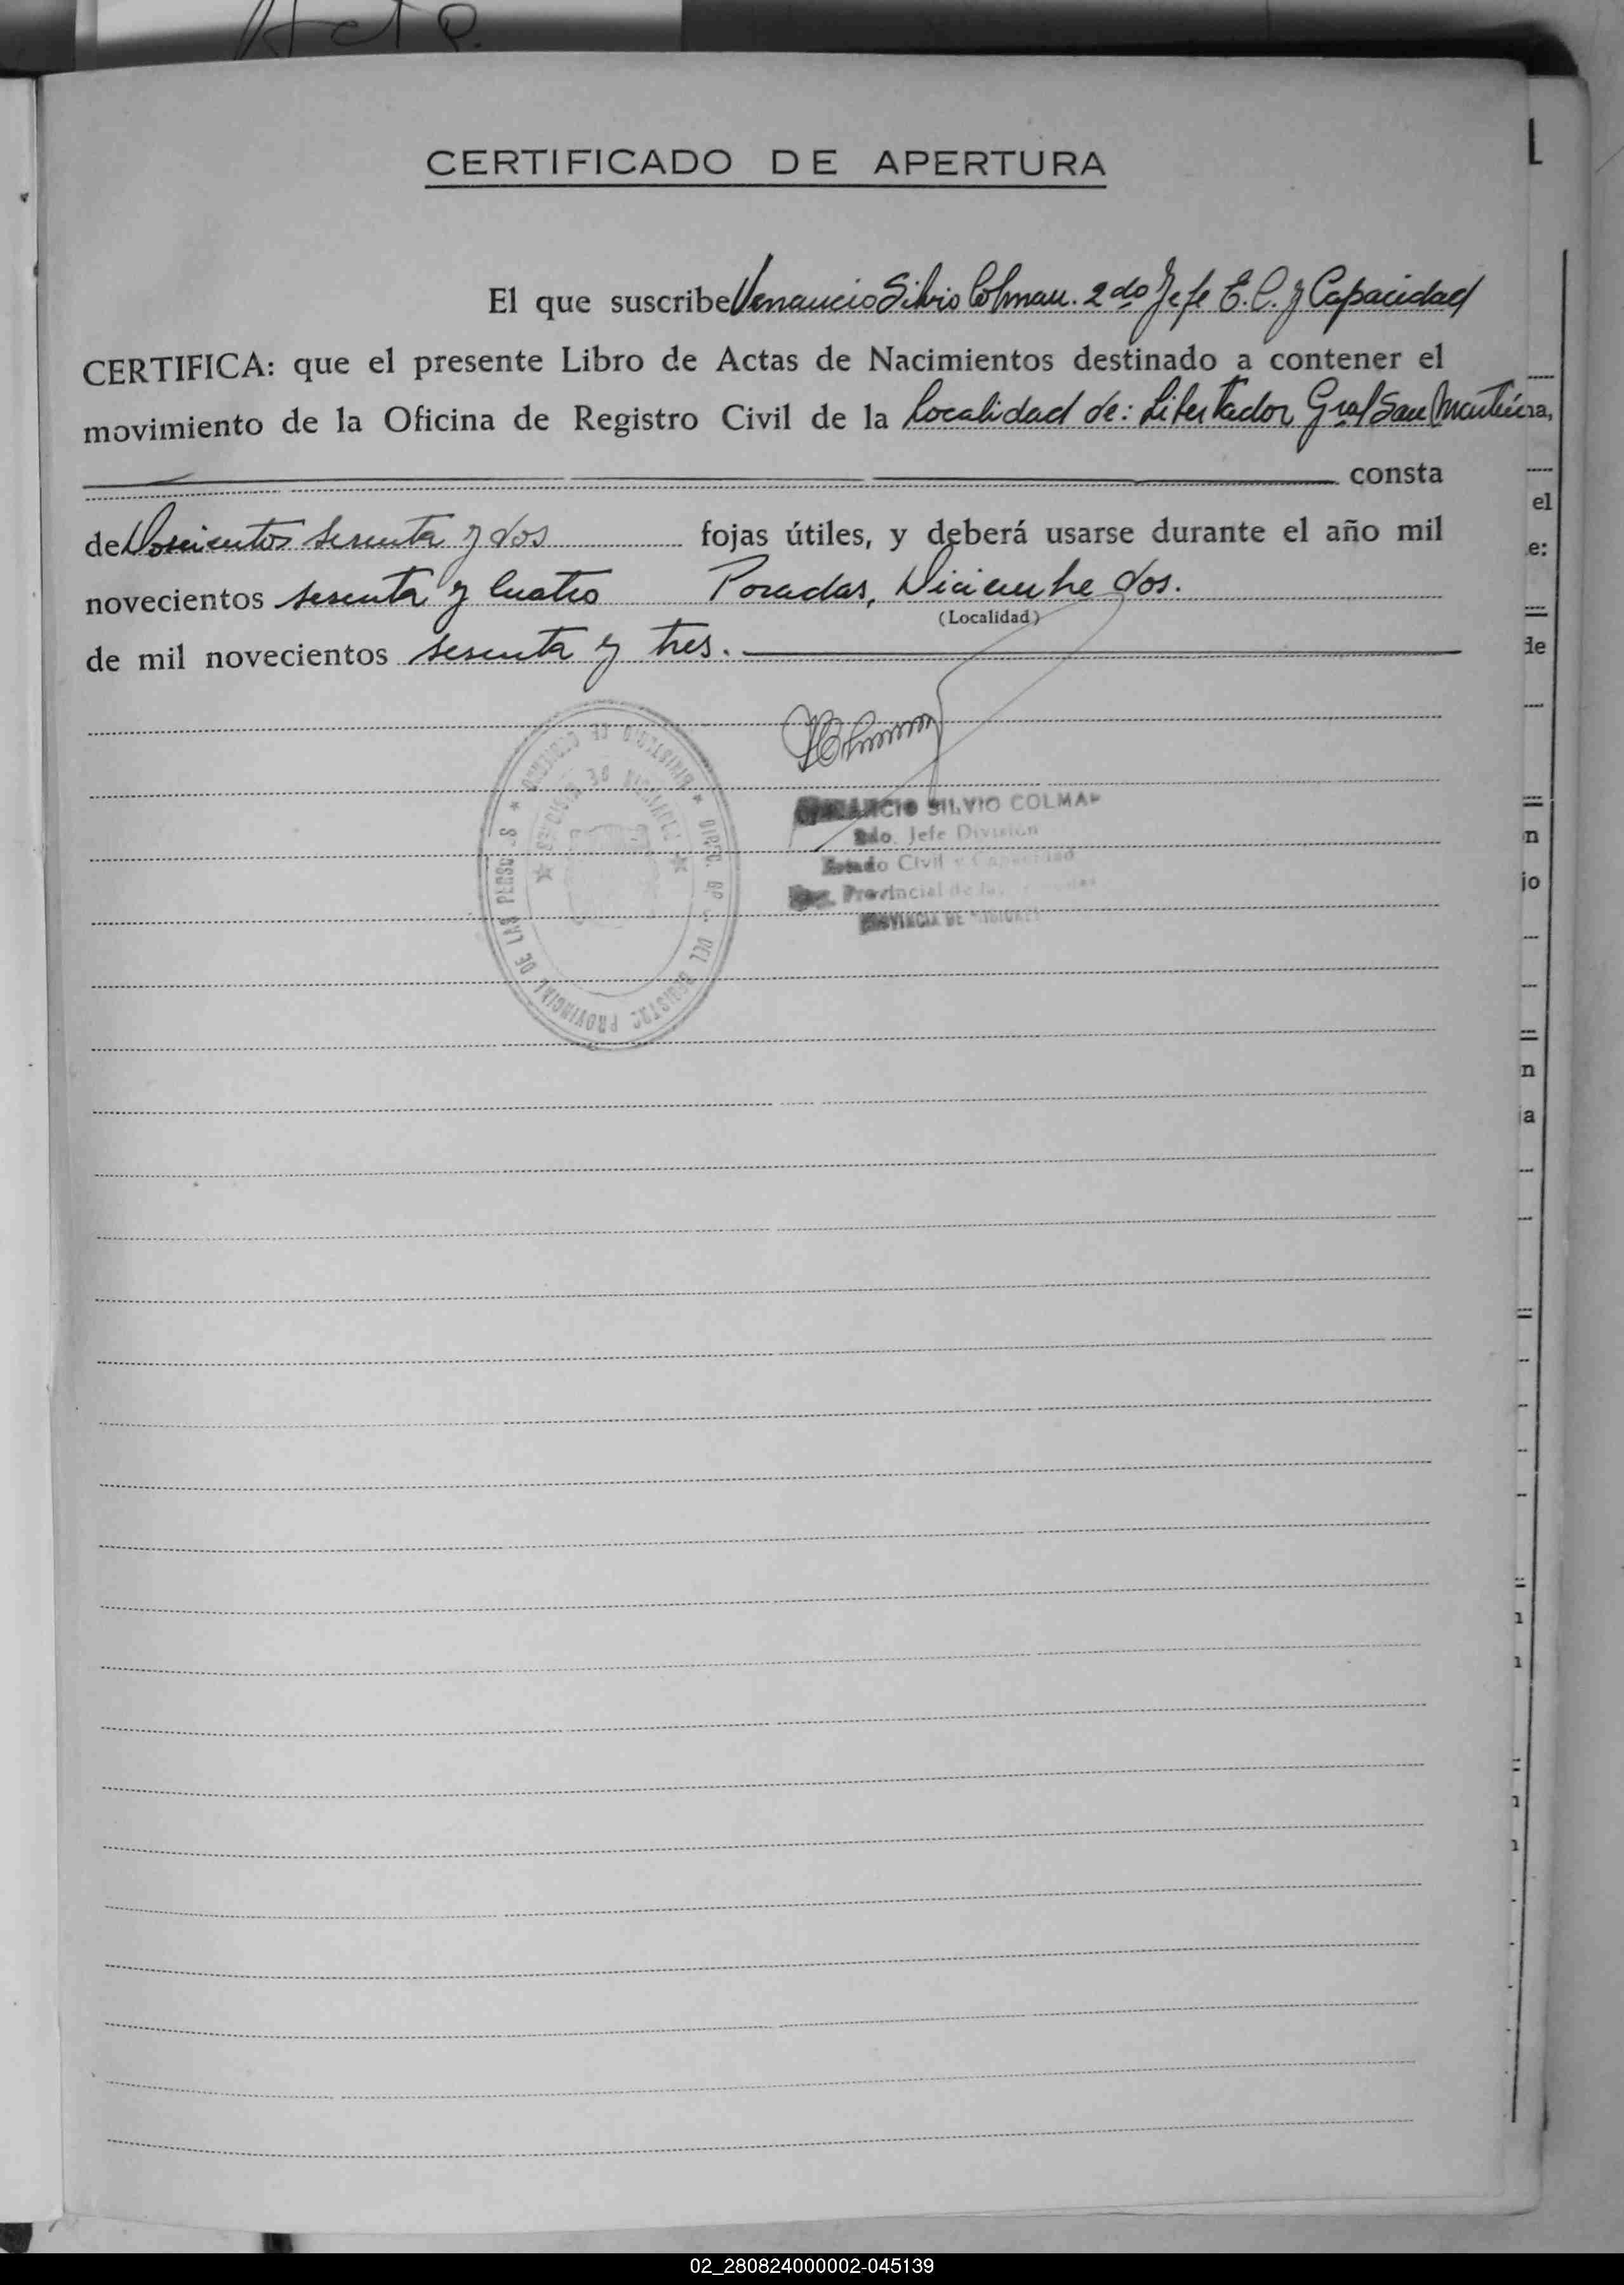 Acta
CERTIFICADO DE APERTURA
El que suscribe Venancio Silvio Colman. 2do Jefe E.C. y Capacidad
CERTIFICA: que el presente Libro de Actas de Nacimientos destinado a contener el
movimiento de la Oficina de Registro Civil de la Localidad de: Libertador Gral San Martín
consta
de Docientos sesenta y dos fojas útiles, y deberá usarse durante el año mil
novecientos sesenta y cuatro Posadas, Diciembre dos.
(Localidad)
de mil novecientos sesenta y tres.
SILVIO COLMAN
2do. Jefe División
Estado Civil y Capacidad
Provincial de las
PROVINCIA DE MISIONES
MINISTERIO DE GOBIERNO
DEL REGISTRO PROVINCIAL DE LAS PERSONAS
PROVINCIA DE MISIONES
L
el
e:
de
n
jo
n
a
02_280824000002-045139